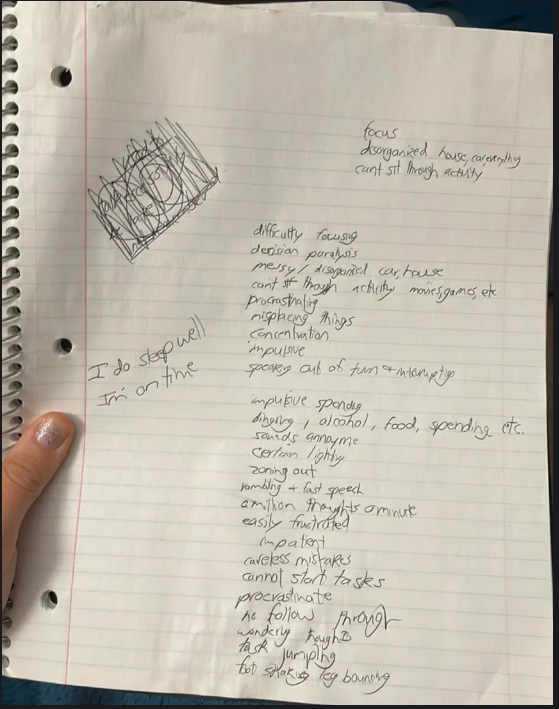 focus
disorganized house, car, everything
cant sit through activity
difficulty focusing
decision paralysis
messy / disorganized car, house
cant sit though activity movies, games, etc
procrastinating
misplacing things
concentration
impulsive
speaking out of turn + interrupting
I do sleep well
Im on time
impulsive spending
binging, alcohol, food, spending etc.
sounds annoy me
certain lights
zoning out
rambling + fast speech
a million thoughts a minute
easily frustrated
impatient
careless mistakes
cannot start tasks
procrastinate
no follow through
wandering thoughts
task jumping
foot shaking leg bouncing